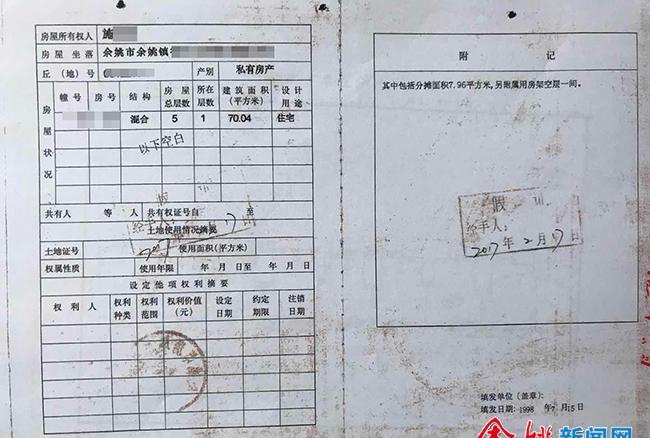 房屋所有权人 施
房屋坐落 余姚市余姚镇
丘（地）号 产别 私有房产
房屋状况
幢号 房号 结构 房屋总层数 所在层数 建筑面积（平方米） 设计用途
混合 5 1 70.04 住宅
以下空白
共有人 等 人 共有权证号自 至
土地使用情况摘要
土地证号 使用面积（平方米）
权属性质 使用年限 年 月 日至 年 月 日
设定他项权利摘要
权利人 权利种类 权利范围 权利价值（元） 设定日期 约定期限 注销日期
假
经手人：
2017
17
附 记
其中包括分摊面积7.96平方米，另附属用房架空层一间。
假
经手人：
2017年2月17日
填发单位（盖章）：
填发日期：1998 年 7 月 15 日
余姚新闻网